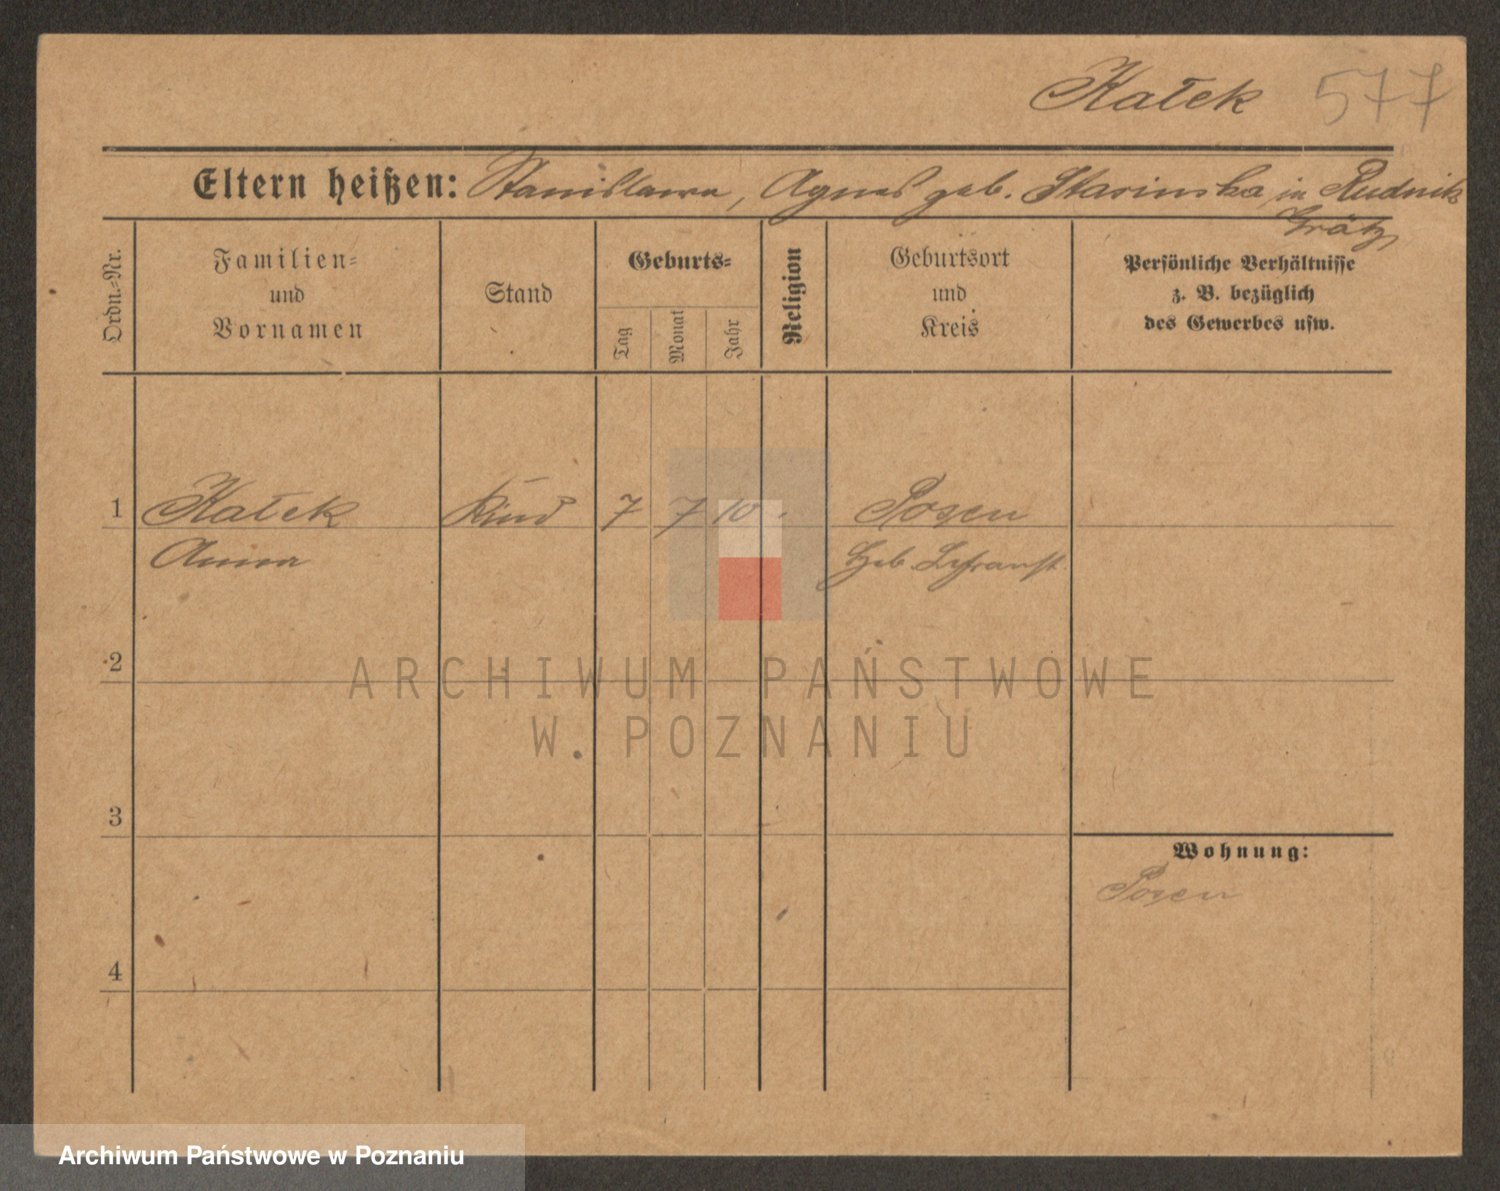 Kałek 577
Eltern heißen: Stanislawa, Agnes geb. Starinska in Rudnik
Grätz
Ordn.-Nr.
Familien-
und
Vornamen
Stand
Geburts-
Tag
Monat
Jahr
Religion
Geburtsort
und
Kreis
Persönliche Verhältnisse
z. B. bezüglich
des Gewerbes usw.
1 Kałek Kind 7 7 10. Posen
Anna Heb. Lehranst.
2
3
4
Wohnung:
Posen
ARCHIWUM PAŃSTWOWE
W POZNANIU
Archiwum Państwowe w Poznaniu